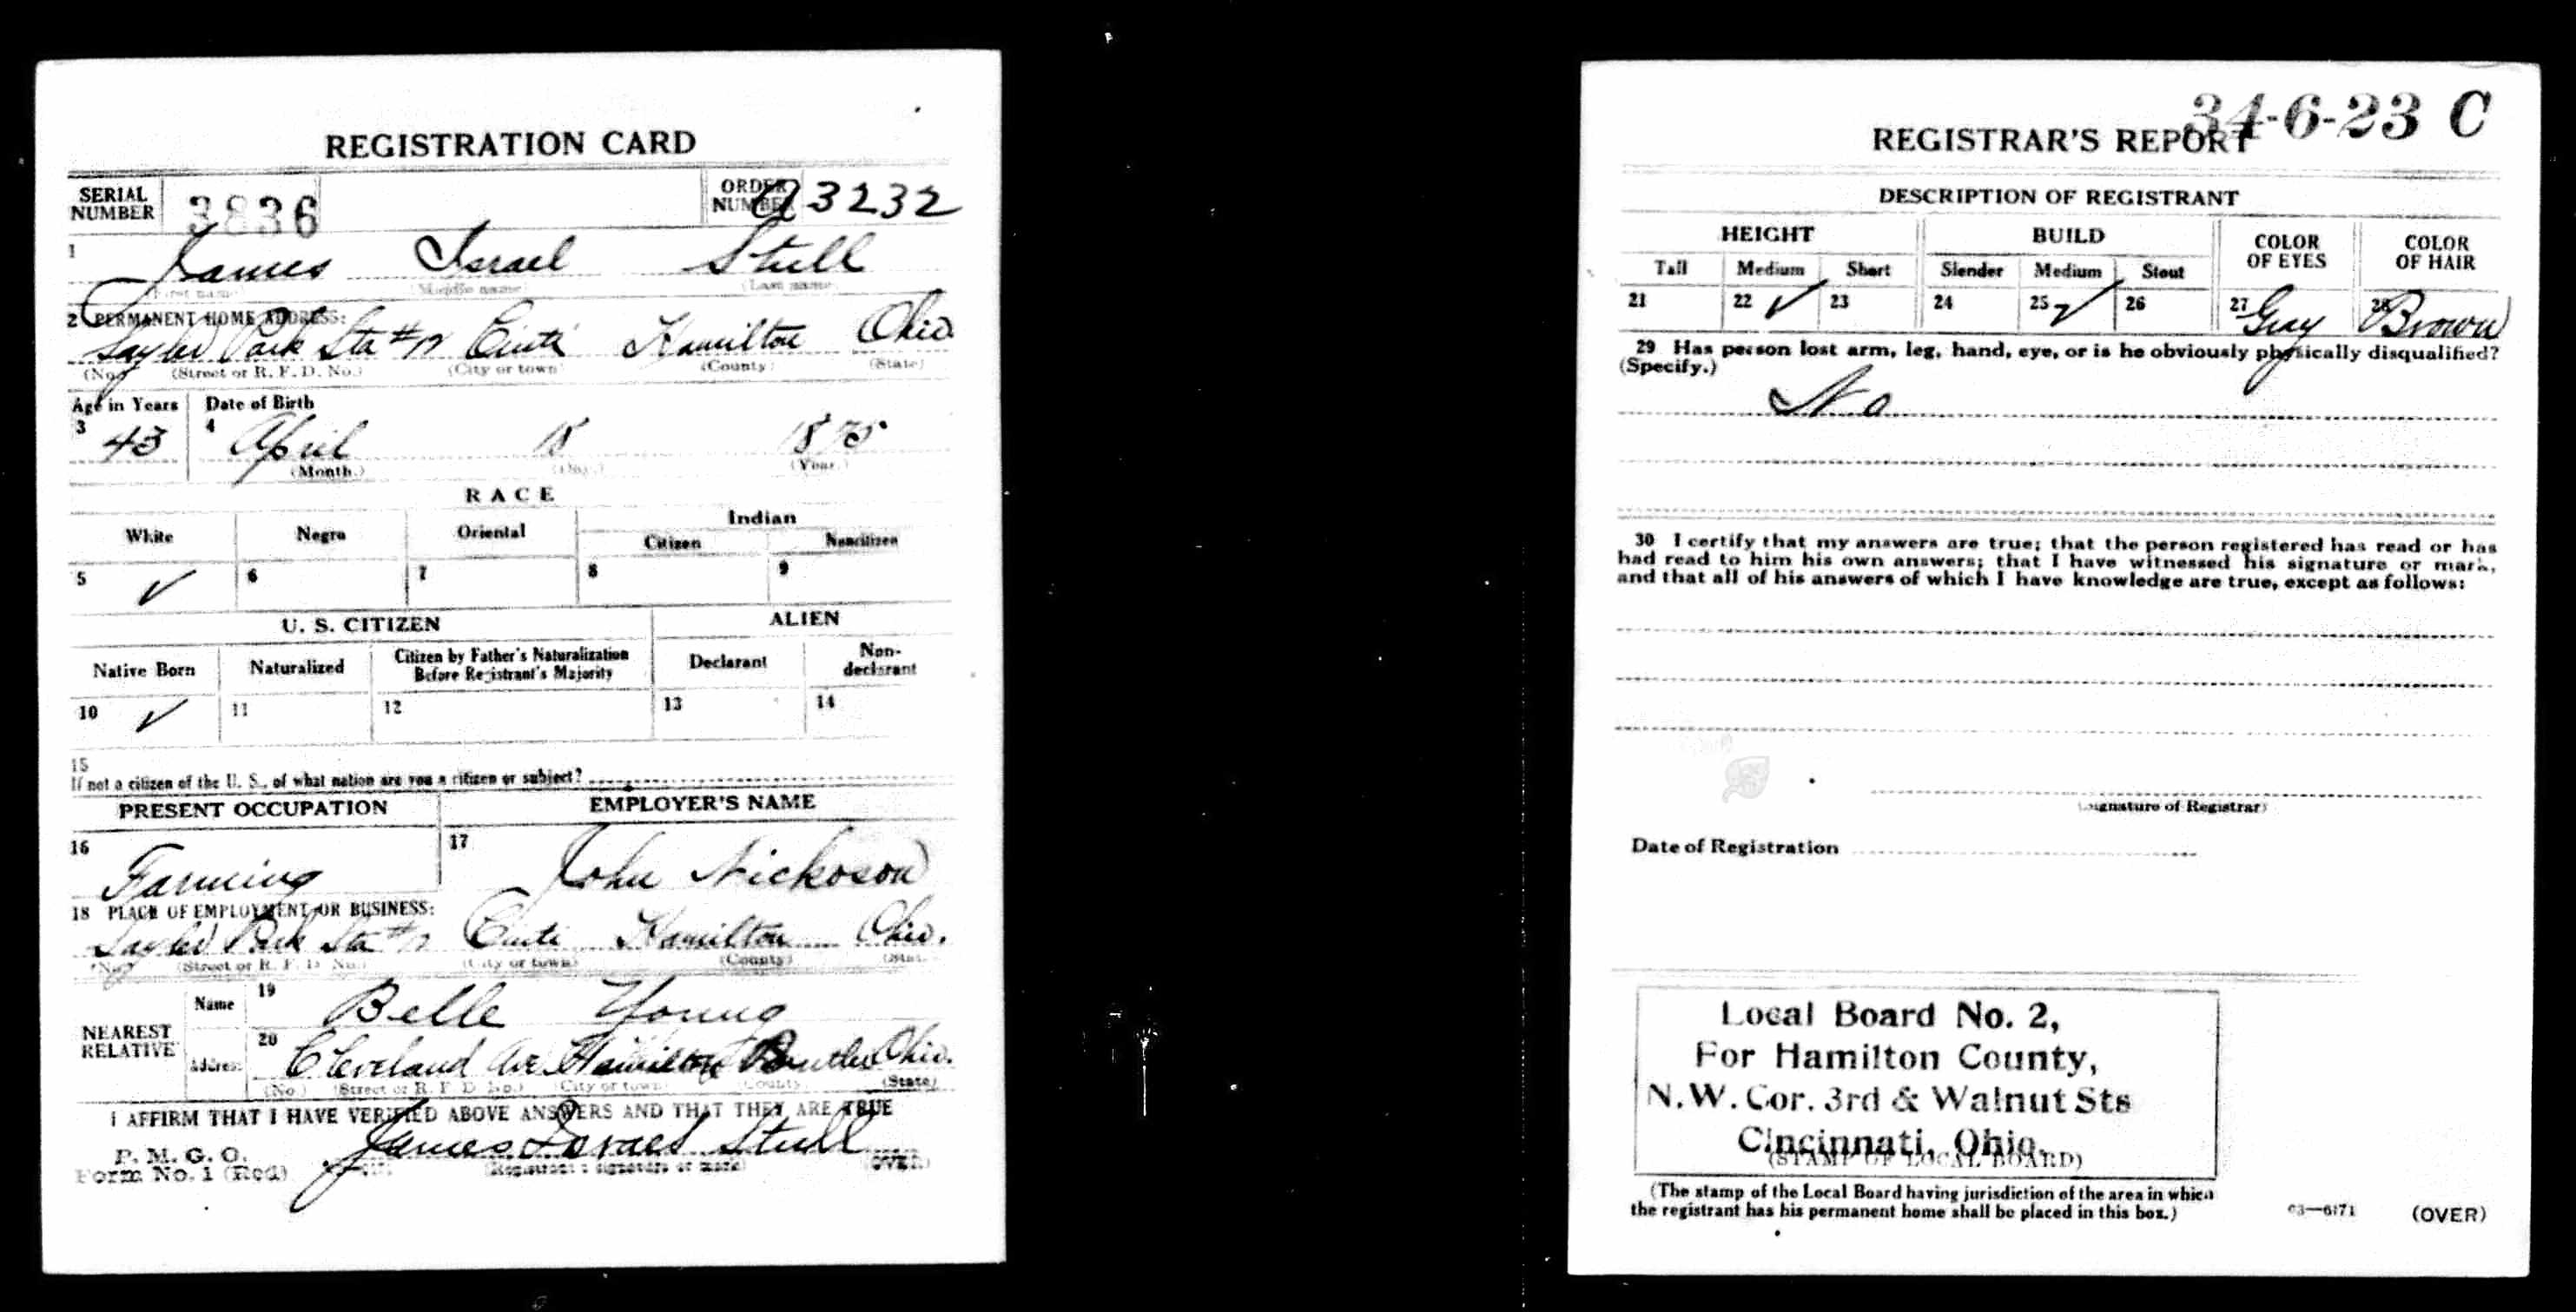 REGISTRATION CARD
SERIAL NUMBER 3836 ORDER NUMBER A3232
1 James Israel Stull
(First name) (Middle name) (Last name)
2 PERMANENT HOME ADDRESS:
Sayler Park Sta #12 Cinti Hamilton Ohio
(No.) (Street or R. F. D. No.) (City or town) (County) (State)
Age in Years Date of Birth
3 43 4 April 18 1875
(Month.) (Day.) (Year.)
RACE
White Negro Oriental Indian
Citizen Noncitizen
5 ✓ 6 7 8 9
U. S. CITIZEN ALIEN
Native Born Naturalized Citizen by Father's Naturalization Before Registrant's Majority Declarant Non-declarant
10 ✓ 11 12 13 14
15
If not a citizen of the U. S., of what nation are you a citizen or subject?
PRESENT OCCUPATION EMPLOYER'S NAME
16 Farming 17 John Nickoson
18 PLACE OF EMPLOYMENT OR BUSINESS:
Sayler Park Sta #12 Cinti Hamilton Ohio.
(No.) (Street or R. F. D. No.) (City or town) (County) (State)
NEAREST RELATIVE
Name 19 Belle Young
Address 20 Cleveland Ave Hamilton Butler Ohio.
(No.) (Street or R. F. D. No.) (City or town) (County) (State)
I AFFIRM THAT I HAVE VERIFIED ABOVE ANSWERS AND THAT THEY ARE TRUE
P. M. G. O.
Form No. 1 (Red) James Israel Stull
(Registrant's signature or mark) (OVER)
34-6-23 C
REGISTRAR'S REPORT
DESCRIPTION OF REGISTRANT
HEIGHT BUILD COLOR OF EYES COLOR OF HAIR
Tall Medium Short Slender Medium Stout
21 22 ✓ 23 24 25 ✓ 26 27 Gray 28 Brown
29 Has person lost arm, leg, hand, eye, or is he obviously physically disqualified?
(Specify.)
No
30 I certify that my answers are true; that the person registered has read or has
had read to him his own answers; that I have witnessed his signature or mark,
and that all of his answers of which I have knowledge are true, except as follows:
(Signature of Registrar)
Date of Registration
Local Board No. 2,
For Hamilton County,
N. W. Cor. 3rd & Walnut Sts
Cincinnati, Ohio.
(STAMP OF LOCAL BOARD)
(The stamp of the Local Board having jurisdiction of the area in which
the registrant has his permanent home shall be placed in this box.)
03—6171 (OVER)